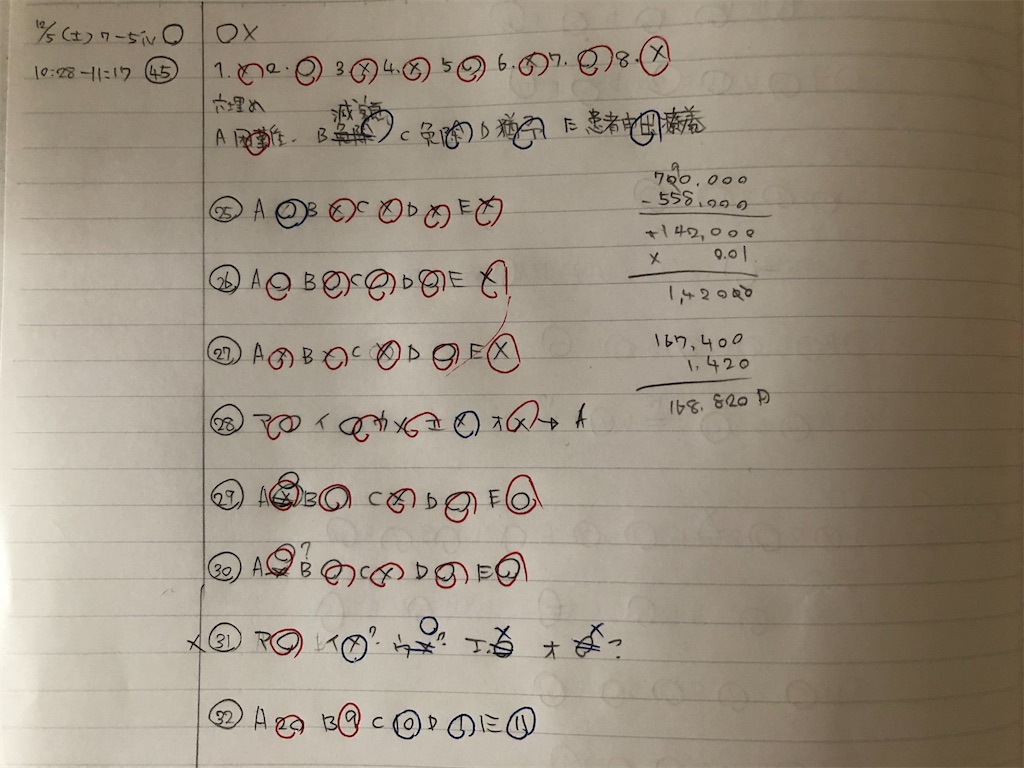 12/5(土) 7-5iv ○
10:28-11:17 45
○×
1.× 2.○ 3.× 4.× 5○ 6.× 7.○ 8.×
穴埋め
減
A B C 免除 D 猶予 E 患者申出療養
25 A ○ B × C × D × E ×
26 A ○ B ○ C ○ D ○ E ×
27 A × B × C × D ○ E ×
28 ア ○ イ ○ ウ × エ × オ × → A
29 A ○ B ○ C × D ○ E ○
30 A ○? B ○ C × D ○ E ○
× 31 ア ○ イ ×? ウ ○? エ. × オ ×?
32 A 20 B 9 C 10 D E 11
700,000
-558,000
142,000
× 0.01
1,420
167,400
1,420
168,820円